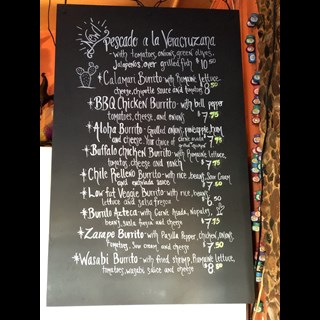 pescado a la Veracruzana
with tomatoes, onions, green olives,
Jalapenos, over grilled fish $10.50
*Calamari Burrito - with Romaine lettuce,
cheese, chipotle sauce and tomatoes 8.50
*BBQ Chicken Burrito - with bell pepper
tomatoes, cheese, and onions $7.95
*Aloha Burrito - Grilled onions, pineapple, ham
and cheese. Your choice of
*Buffalo chicken Burrito - with Romaine lettuce,
tomatoes, cheese and ranch $7.95
*Chile Relleno Burrito - with rice, beans, Sour Cream
and enchilada sauce
*Low fat Veggie Burrito - with rice, beans,
lettuce and salsa fresca $6.50
*Burrito Azteca - with Carne Asada, Nopales,
beans, salsa fresca and cheese $7.95
*Zarape Burrito - with Pasilla Pepper, chicken, onions,
tomatoes, Sour cream and cheese $7.50
*Wasabi Burrito - with fried shrimp, Romaine lettuce,
tomatoes, wasabi sauce and cheese $8.50